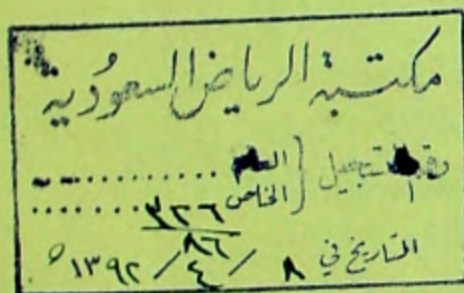 مكتبة الرياض السعودية
رقم التسجيل { العام ..........
الخاص ٣٢٦ / ٨٦
التاريخ في ٨ / ٤ / ١٣٩٢ ه